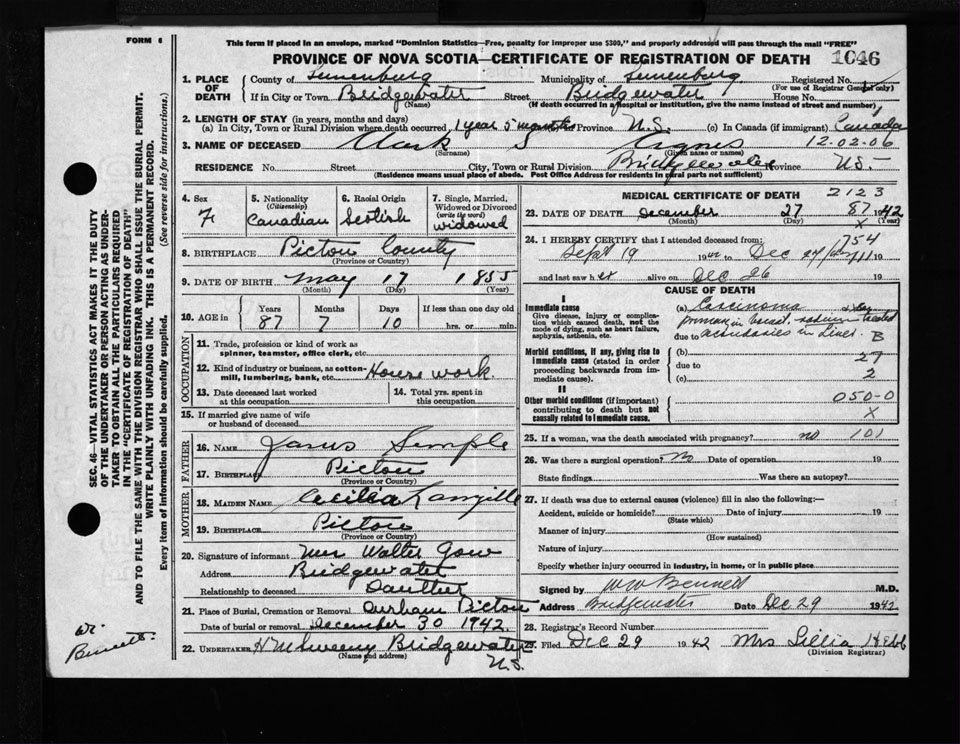 FORM 6
This form if placed in an envelope, marked "Dominion Statistics—Free, penalty for improper use $300," and properly addressed will pass through the mail "FREE"
PROVINCE OF NOVA SCOTIA—CERTIFICATE OF REGISTRATION OF DEATH
1046
1. PLACE OF DEATH County of Lunenburg Municipality of Lunenburg Registered No.
(For use of Registrar General only)
If in City or Town Bridgewater Street Bridgewater House No.
(Name) (If death occurred in a hospital or institution, give the name instead of street and number)
2. LENGTH OF STAY (in years, months and days)
(a) In City, Town or Rural Division where death occurred 1 year 5 months Province N.S. (c) In Canada (if immigrant) Canada
3. NAME OF DECEASED Clark S Agnes 12-02-06
(Surname) (Given name or names)
RESIDENCE No. Street City, Town or Rural Division Bridgewater Province N.S.
(Residence means usual place of abode. Post Office Address for residents in rural parts not sufficient)
4. Sex F
5. Nationality (Citizenship) Canadian
6. Racial Origin Scotish
7. Single, Married, Widowed or Divorced (write the word) widowed
8. BIRTHPLACE Pictou County
(Province or County)
9. DATE OF BIRTH May 17 1855
(Month) (Day) (Year)
10. AGE in Years 87 Months 7 Days 10 If less than one day old hrs. or min.
OCCUPATION
11. Trade, profession or kind of work as spinner, teamster, office clerk, etc.
12. Kind of industry or business, as cotton-mill, lumbering, bank, etc. House work.
13. Date deceased last worked at this occupation
14. Total yrs. spent in this occupation
15. If married give name of wife or husband of deceased
FATHER
16. NAME James Semple
17. BIRTHPLACE Pictou
(Province or County)
MOTHER
18. MAIDEN NAME Cecilia Langille
19. BIRTHPLACE Pictou
(Province or County)
20. Signature of informant Mrs Walter Gow
Address Bridgewater
Relationship to deceased Daughter
21. Place of Burial, Cremation or Removal Durham Pictou
Date of burial or removal December 30 1942.
22. UNDERTAKER H M Sweeny Bridgewater
(Name and address) N.S.
MEDICAL CERTIFICATE OF DEATH 2123
23. DATE OF DEATH December 27 87 1942
(Month) (Day) X
24. I HEREBY CERTIFY that I attended deceased from: 754
Sept 19 1942 to Dec 24/42 19
and last saw her alive on Dec 26 19
CAUSE OF DEATH
I
Immediate cause
Give disease, injury or complication which caused death, not the mode of dying, such as heart failure, asphyxia, asthenia, etc.
(a) Carcinoma
primary in breast, radium treated
due to secondaries in liver. B
Morbid conditions, if any, giving rise to immediate cause (stated in order proceeding backwards from immediate cause).
(b) 27
due to
(c) 2
II
Other morbid conditions (if important) contributing to death but not causally related to immediate cause.
050-0
X
25. If a woman, was the death associated with pregnancy? no 101
26. Was there a surgical operation? No Date of operation 19
State findings Was there an autopsy?
27. If death was due to external causes (violence) fill in also the following:—
Accident, suicide or homicide? Date of injury 19
(State which)
Manner of injury
(How sustained)
Nature of injury
Specify whether injury occurred in industry, in home, or in public place
Signed by W W Bennett M.D.
Address Bridgewater Date Dec 29 1942
28. Registrar's Record Number
29. Filed Dec 29 1942 Mrs Lillia Hebb
(Division Registrar)
SEC. 46—VITAL STATISTICS ACT MAKES IT THE DUTY
OF THE UNDERTAKER OR PERSON ACTING AS UNDER-
TAKER TO OBTAIN ALL THE PARTICULARS REQUIRED
IN THE "CERTIFICATE OF REGISTRATION OF DEATH"
AND TO FILE THE SAME WITH THE DIVISION REGISTRAR WHO SHALL ISSUE THE BURIAL PERMIT.
WRITE PLAINLY WITH UNFADING INK. THIS IS A PERMANENT RECORD.
Every item of information should be carefully supplied. (See reverse side for instructions.)
W.
Bennett.